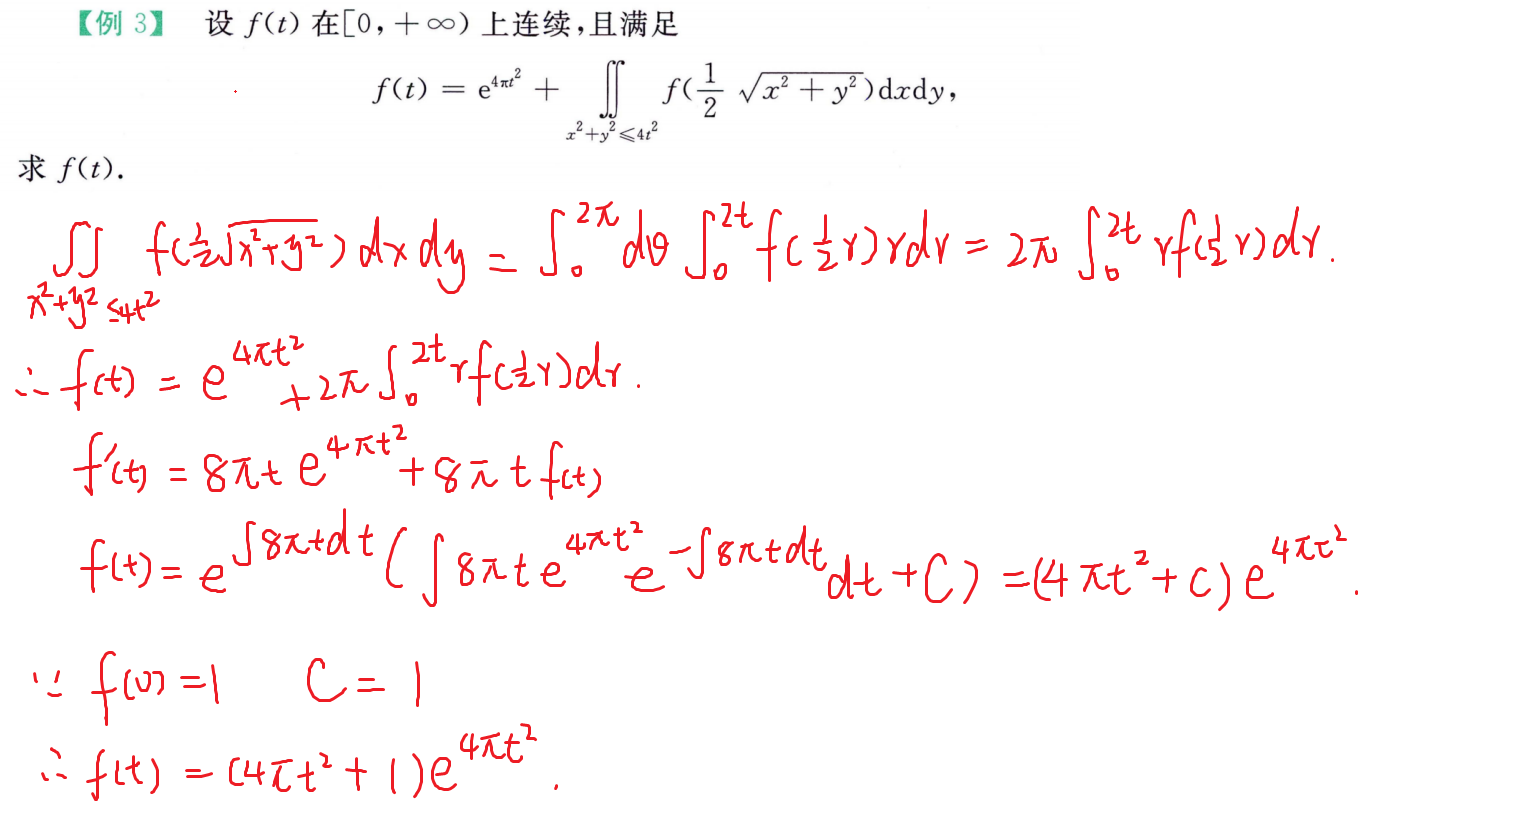 【例 3】 设 f(t) 在[0,+∞) 上连续,且满足
f(t) = e^{4πt²} + ∬_{x²+y²≤4t²} f(\frac{1}{2}√(x²+y²))dxdy,
求 f(t).
∬_{x²+y²≤4t²} f(\frac{1}{2}√(x²+y²))dxdy = ∫_0^{2π} dθ ∫_0^{2t} f(\frac{1}{2}r)rdr = 2π ∫_0^{2t} rf(\frac{1}{2}r)dr.
∴ f(t) = e^{4πt²} + 2π ∫_0^{2t} rf(\frac{1}{2}r)dr.
f′(t) = 8πt e^{4πt²} + 8πt f(t)
f(t) = e^{∫8πtdt} (∫8πt e^{4πt²} e^{-∫8πtdt} dt + C) = (4πt² + C) e^{4πt²}.
∵ f(0) = 1 C = 1
∴ f(t) = (4πt² + 1)e^{4πt²}.